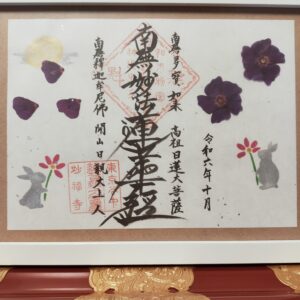 令和六年十月
南無多宝如来 高祖日蓮大菩薩
南無妙法蓮華経
南無釈迦牟尼佛 開山日親大上人
妙福寺